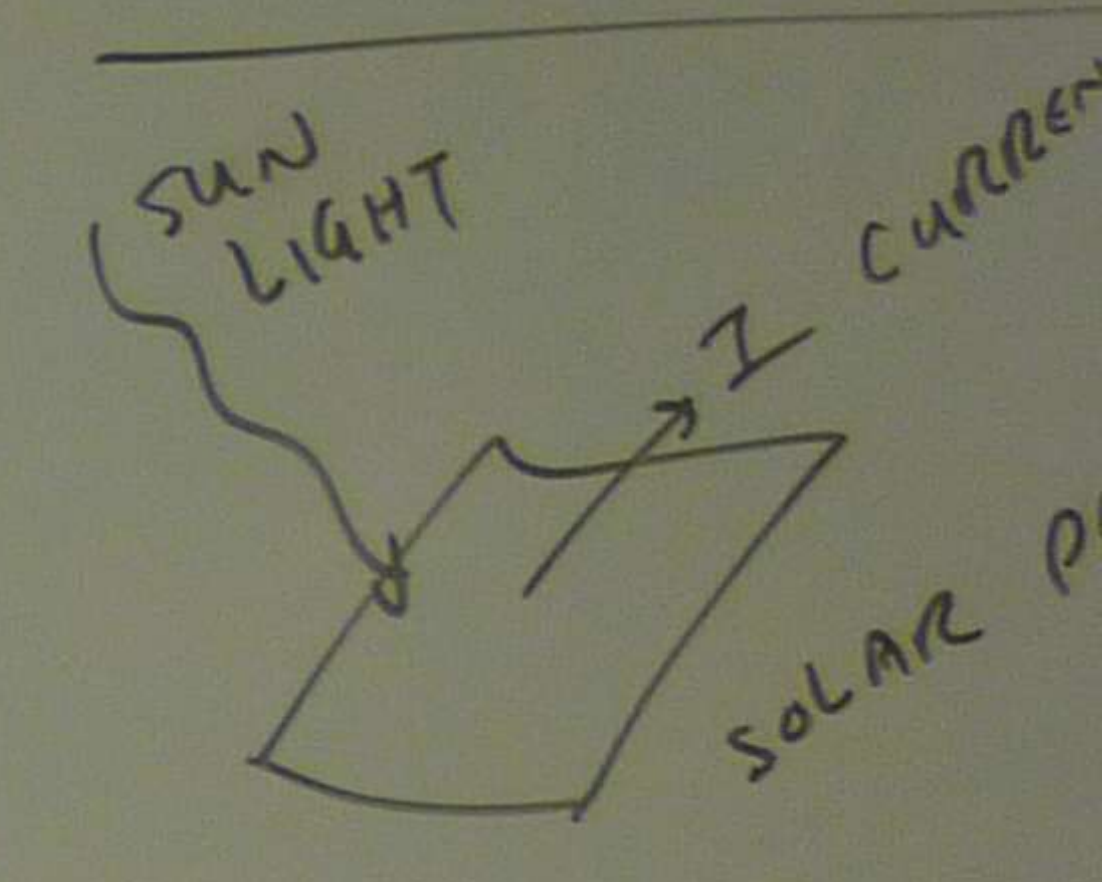 SUN
LIGHT
I CURREN
SOLAR P